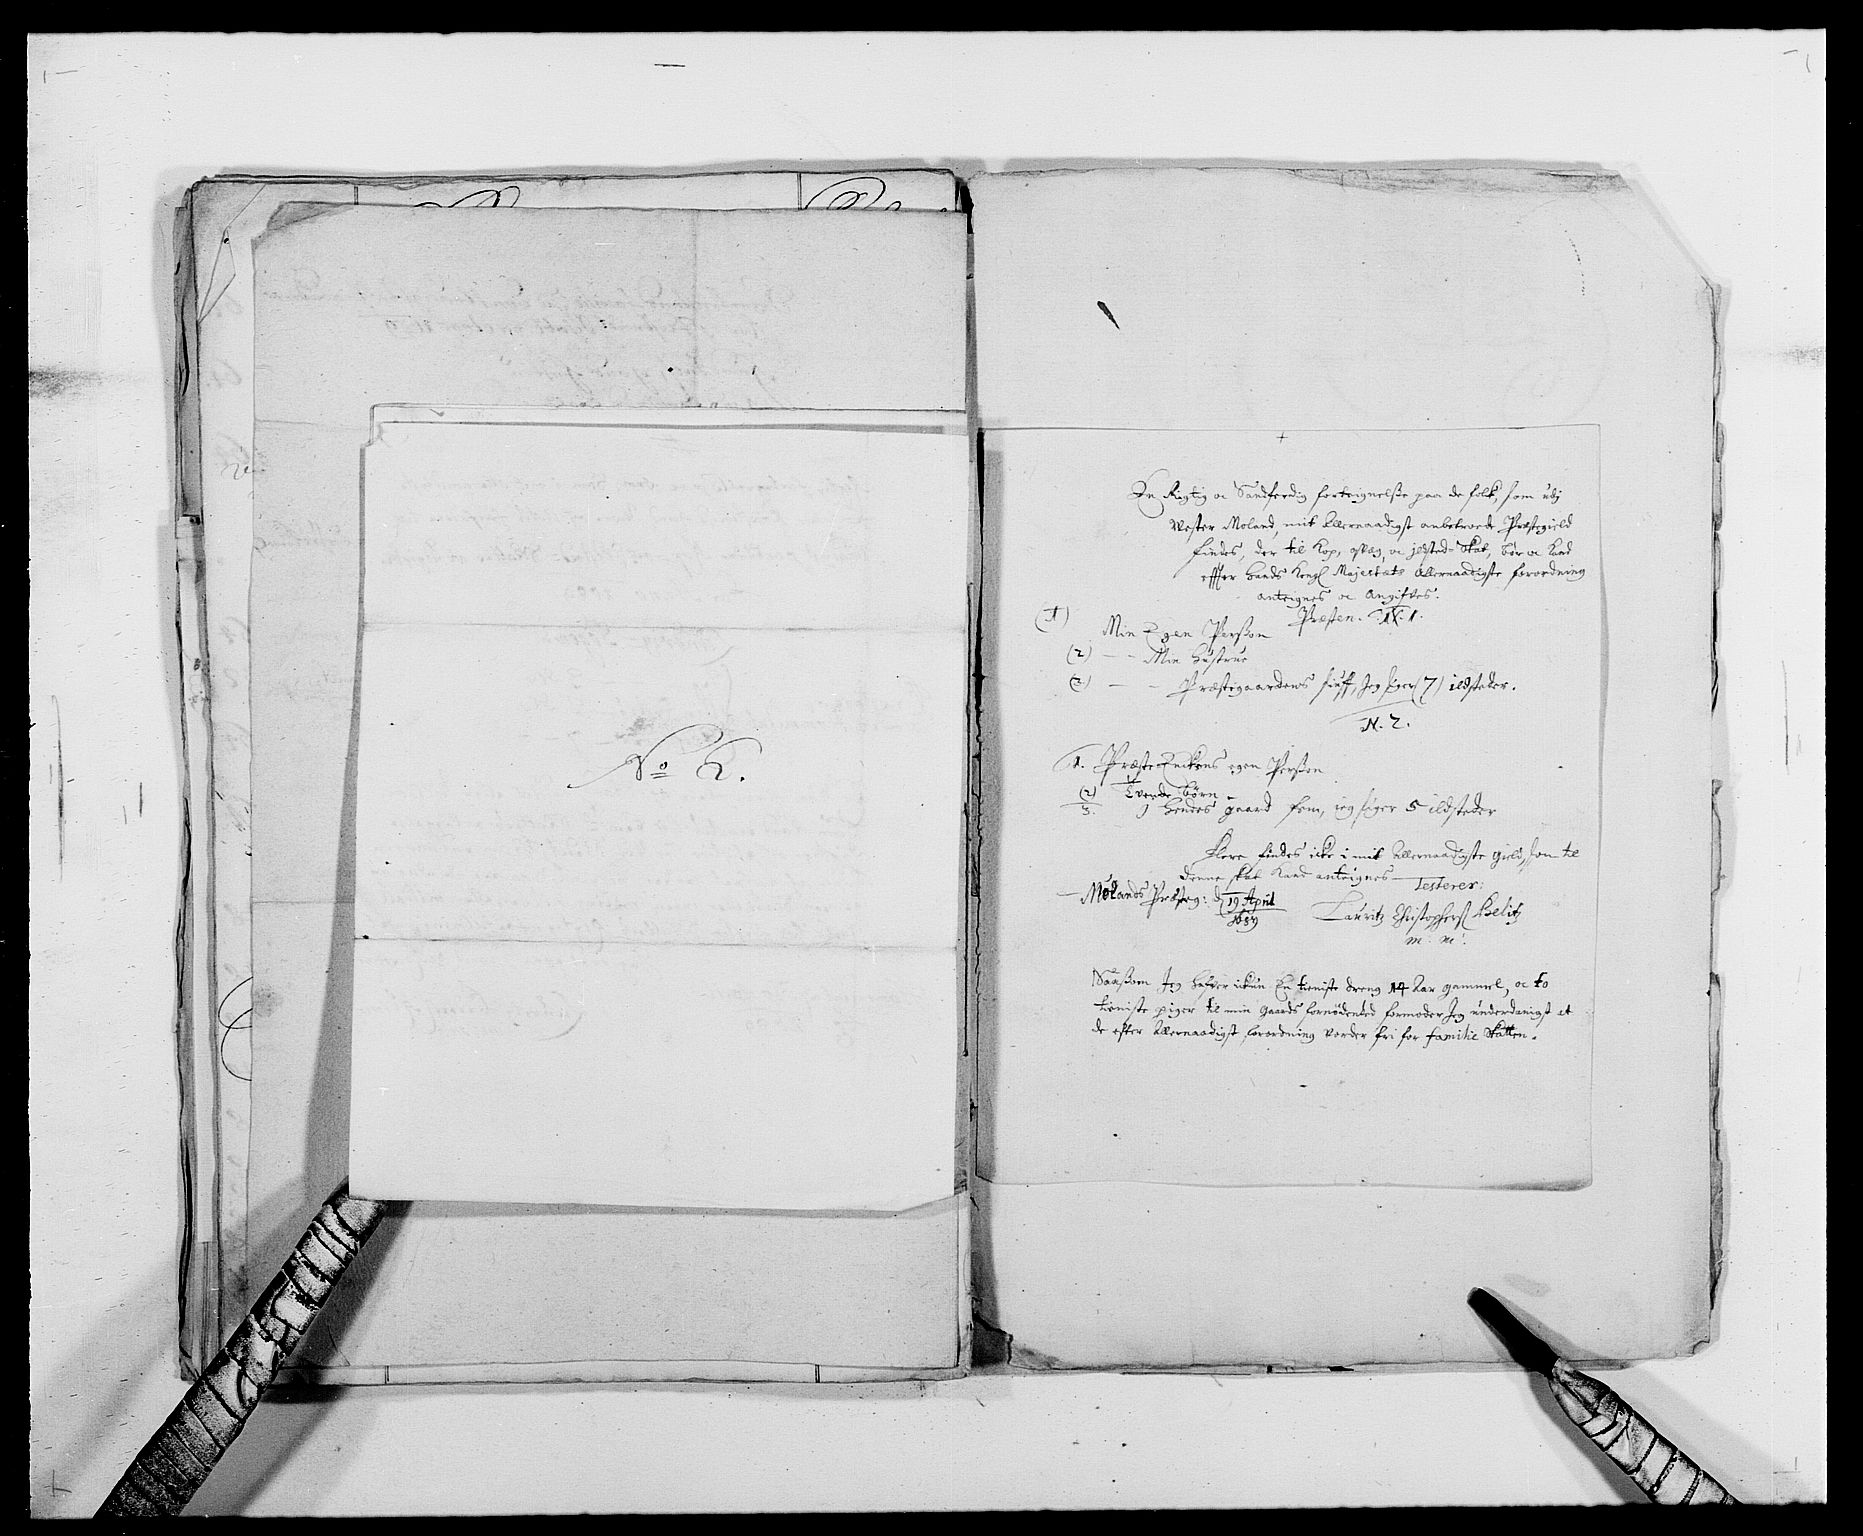 No 2.
En Rigtig oc Sandferdig forteignelsse paa de folk, som udj
Wester Moland, mit Allernaadigst anbetroede Præstegield
findes, der til Kop, qvæg, oc jldsted-Skat, bør oc kand
effter Hands Kongl Majestæts Allernaadigste forordning
anteignes oc Angifves.
Præsten. N. 1.
(1) Min Egen Persson
(2) — — Min Hustrue
(3) — — Præstegaardens, Jeg siger (7) ildsteder.
N. 2.
1. Præste Enckens egen Persson
(2) Tvende Børn
3. J Hendes gaard fem, jeg siger 5 ildsteder
Flere findes icke i mit Allernaadigste gield, som til
denne skat kand anteignes — Testerer:
Mølands Præsteg: d 19 April
Lauritz Christophers
m: m:
Saassom Jeg hafver ickun En tieniste dreng 14 Aar gammel, oc to
tieniste piger til min gaards fornødenhed formoder Jeg underdanigst at
de efter Allernaadigst forordning vorder fri for familie Skatten.